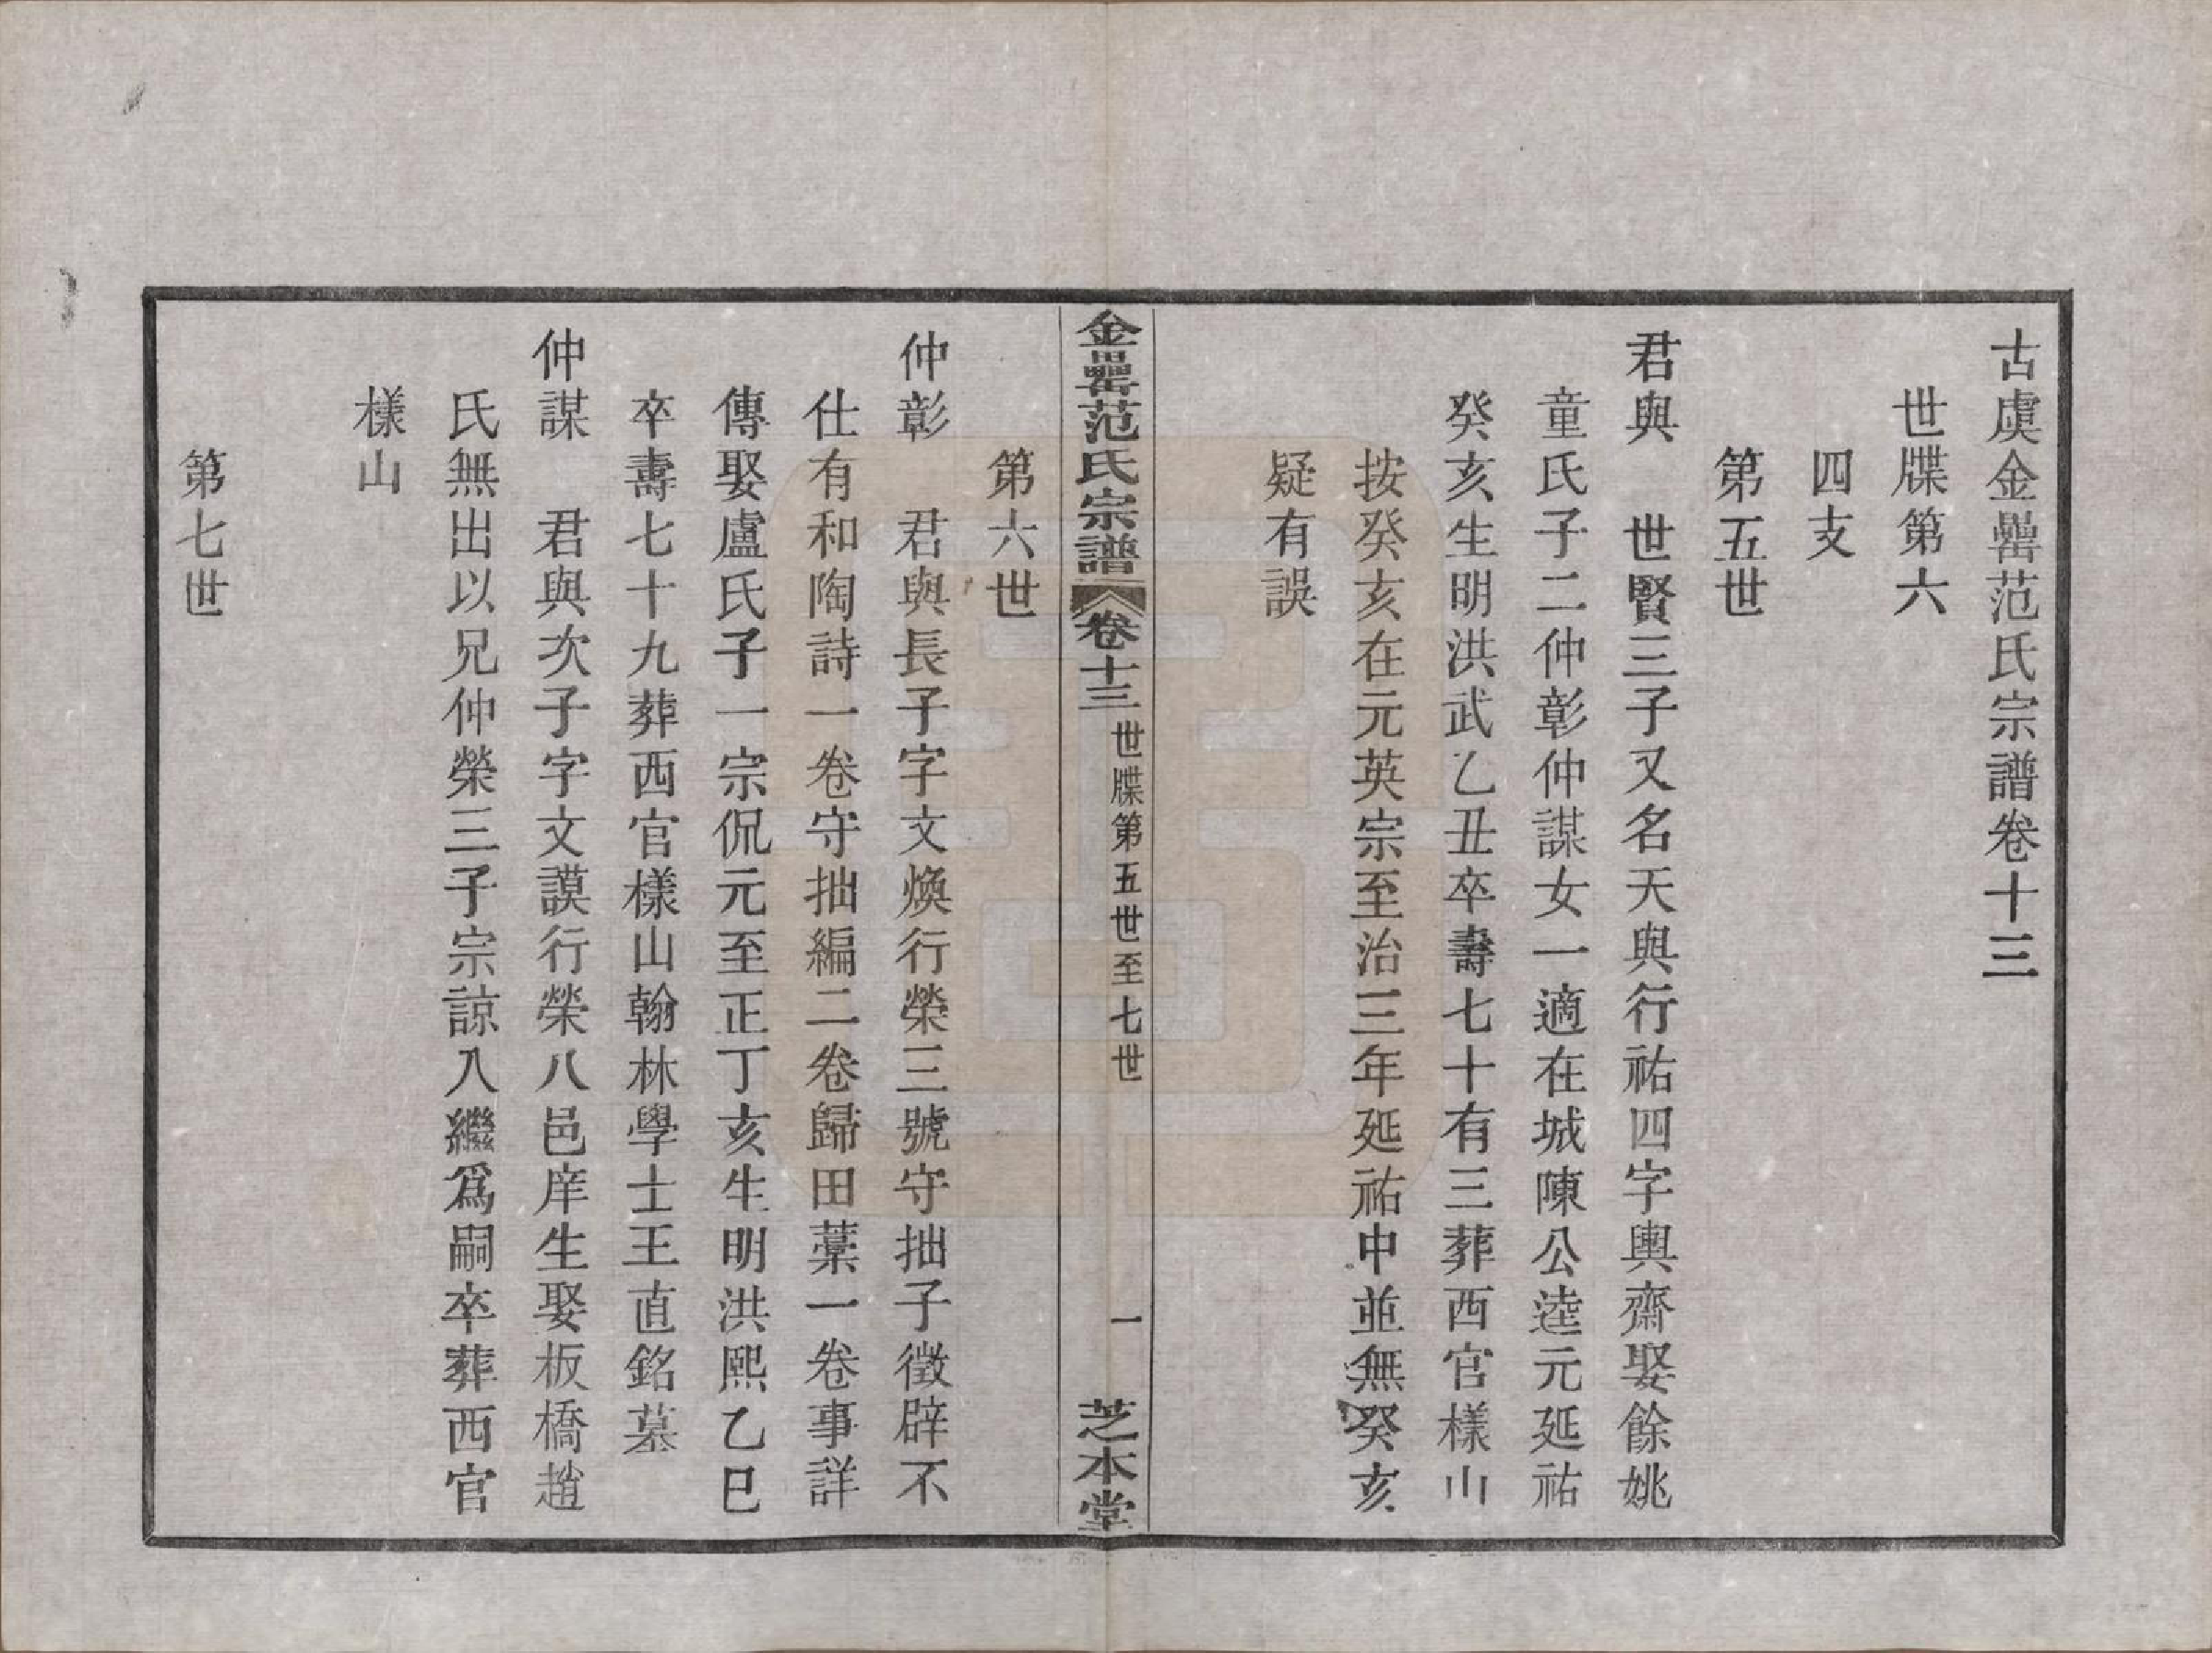 古虞金罍范氏宗譜卷十三
世牒第六
四支
第五世
君與　世賢三子又名天與行祐四字輿齋娶餘姚
童氏子二仲彰仲謀女一適在城陳公逵元延祐
癸亥生明洪武乙丑卒壽七十有三葬西官樣山
按癸亥在元英宗至治三年延祐中並無癸亥
疑有誤
金罍范氏宗譜　卷十三　世牒第五世至七世　一　芝本堂
第六世
仲彰　君與長子字文煥行榮三號守拙子徵辟不
仕有和陶詩一卷守拙編二卷歸田藁一卷事詳
傳娶盧氏子一宗侃元至正丁亥生明洪熙乙巳
卒壽七十九葬西官樣山翰林學士王直銘墓
仲謀　君與次子字文謨行榮八邑庠生娶板橋趙
氏無出以兄仲榮三子宗諒入繼爲嗣卒葬西官
樣山
第七世